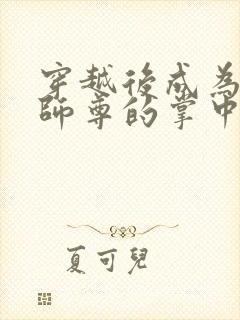 穿越後成為
師尊的掌中
夏可兒